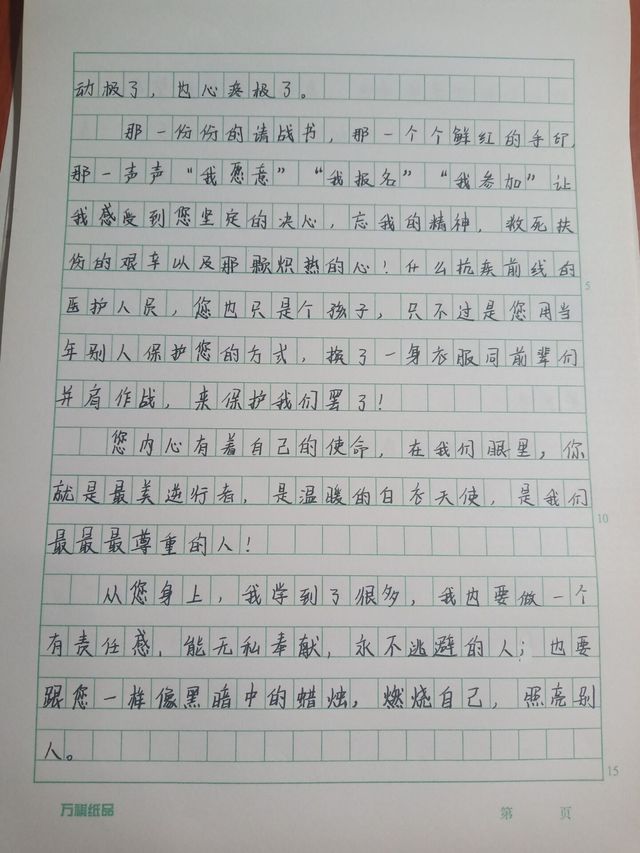 动极了，也心疼极了。
那一份份的请战书，那一个个鲜红的手印，
那一声声“我愿意”“我报名”“我参加”让
我感受到您坚定的决心，忘我的精神，救死扶
伤的艰辛以及那颗炽热的心！什么抗疾前线的
医护人员，您也只是个孩子，只不过是您用当
年别人保护您的方式，换了一身衣服同前辈们
并肩作战，来保护我们罢了！
您内心有着自己的使命，在我们眼里，你
就是最美逆行者，是温暖的白衣天使，是我们
最最最尊重的人！
从您身上，我学到了很多，我也要做一个
有责任感，能无私奉献，永不逃避的人；也要
跟您一样像黑暗中的蜡烛，燃烧自己，照亮别
人。
5
10
15
万祺纸品
第 页